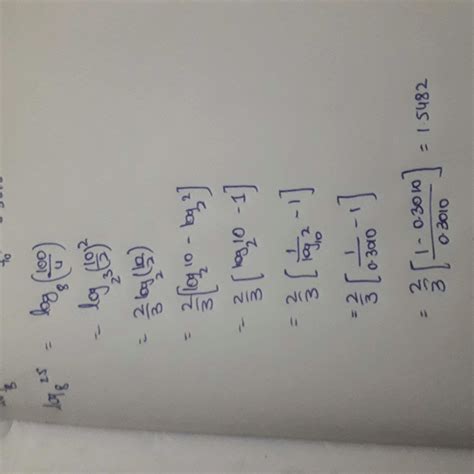 log₈25 = log₈(100/4)
= log_2³(10/2)²
= 2/3 log₂(10/2)
= 2/3 [log₂10 - log₂2]
= 2/3 [log₂10 - 1]
= 2/3 [1/log₁₀2 - 1]
= 2/3 [1/0.3010 - 1]
= 2/3 [1 - 0.3010/0.3010] = 1.5482